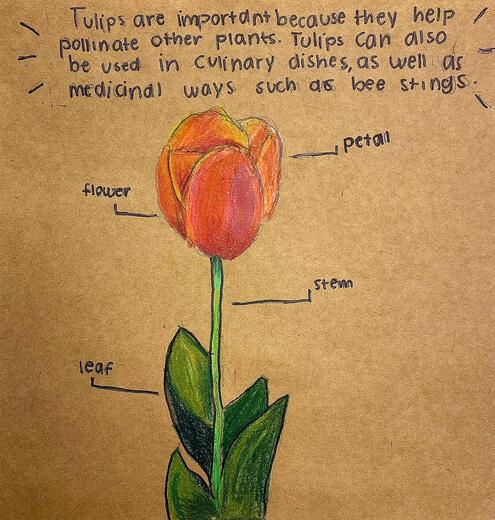 Tulips are important because they help
pollinate other plants. Tulips can also
be used in culinary dishes, as well as
medicinal ways such as bee stings.
petal
flower
stem
leaf